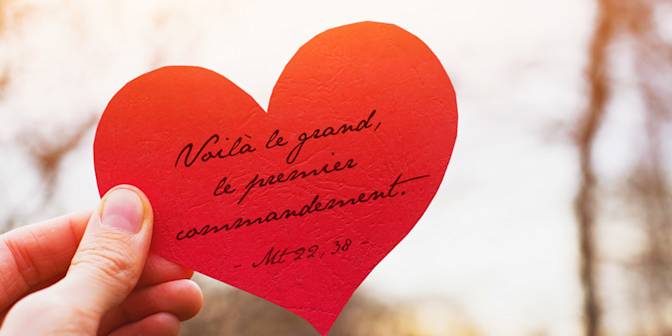 Voilà le grand,
le premier
commandement.
- Mt 22, 38 -